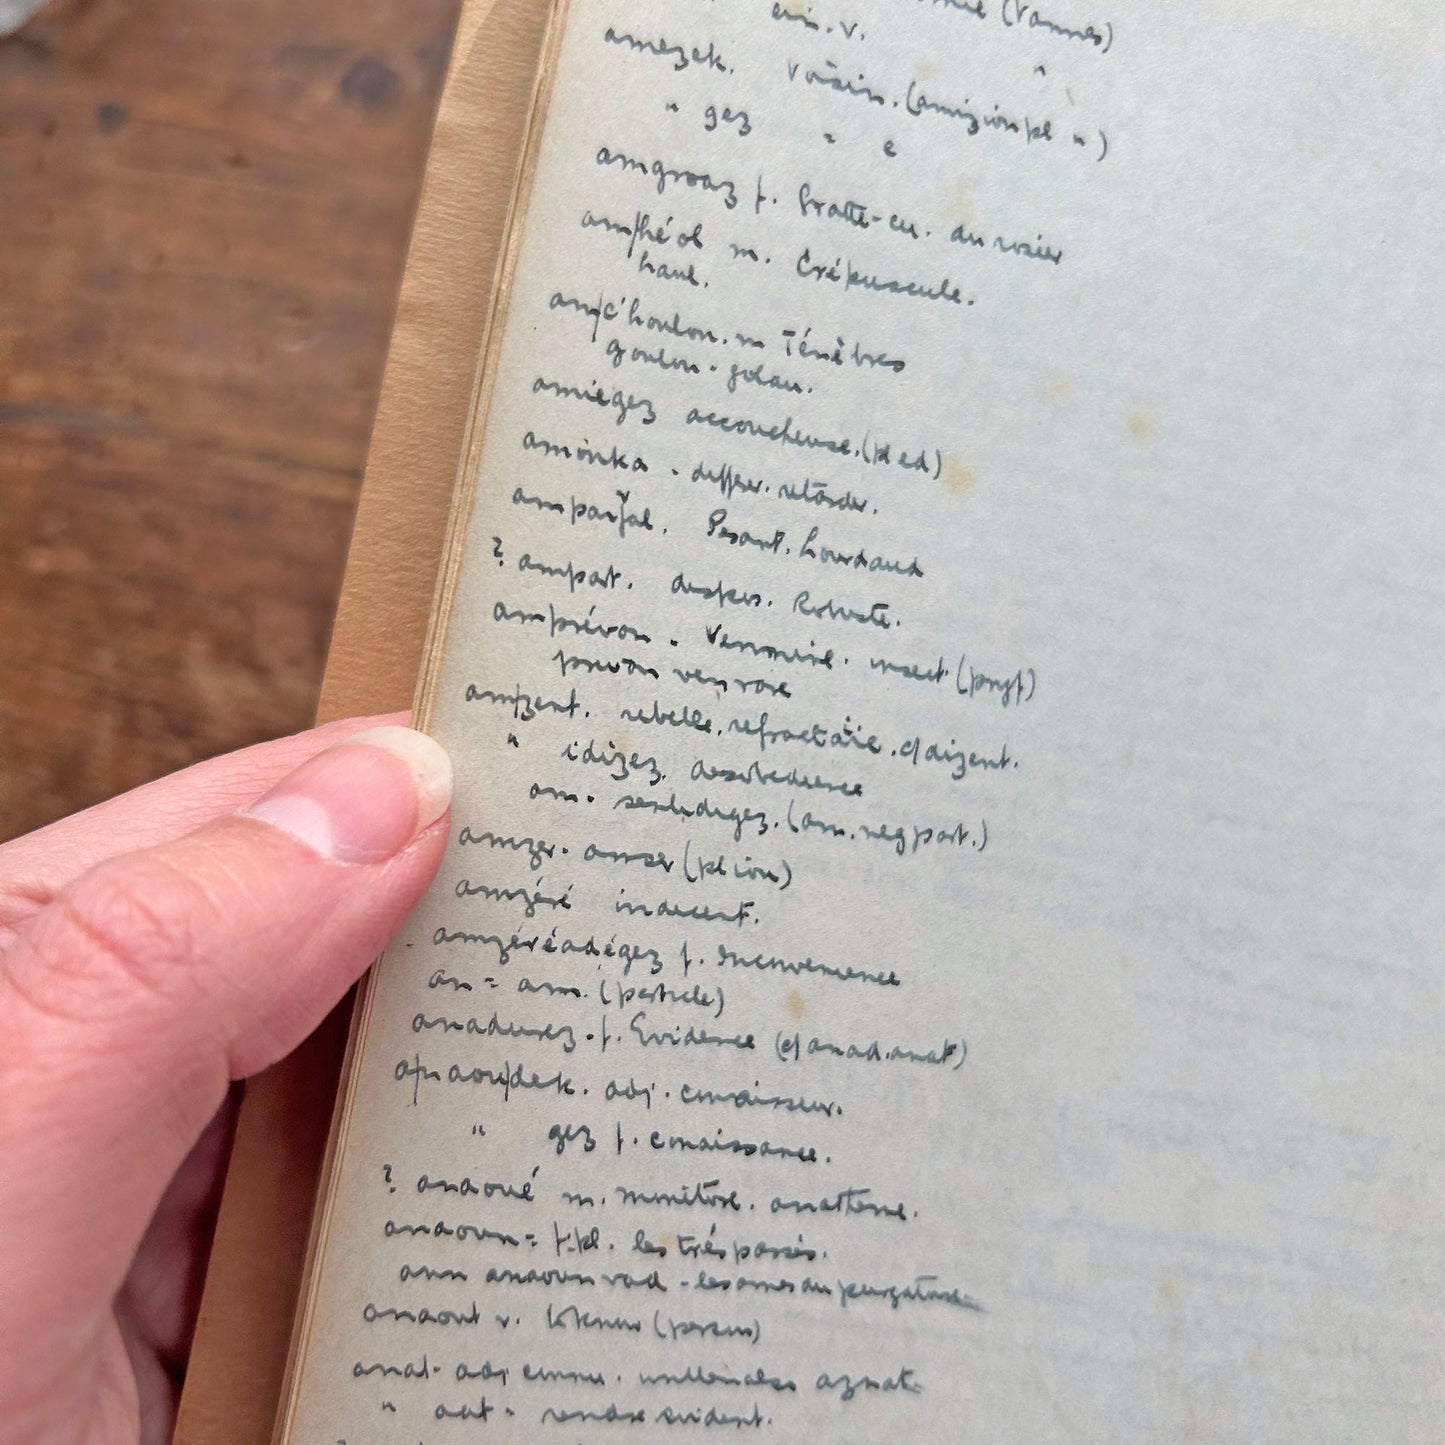 (Vannes)
ein. v.
amezek. Voisin. (amizion pl " )
" gez " e
amgroaz f. Gratte-cu. du rosier
am/héol m. Crépuscule.
haul.
am/c'houlou. m Ténèbres
goulou - golau.
amiégez accoucheuse. (pl ed)
amonka - differ. retarder.
ampafal. Pesant. Lourdaud
? ampart. Robuste.
amprévon - Vermine. insect (pryf)
prevon
am/zent. rebelle. refractaire. cf dizent.
" idigez. desobedience
am - sentidigez. (am. neg part.)
amzer - amser (pl iou)
amzéré indecent.
amzéréadégez f. Inconvenience
an = am. (particle)
anadurez - f. Evidence (cf anad. anat)
anaoudek. adj. connaisseur.
" gez f. conaissance.
? anaoué m. monitoire. anatheme.
anaoun = f. pl. les tréspassés.
ann anaoun vad - les ames du purgatoire
anaout v. to know (person)
anat - adj connu.
" aat - rendre evident.